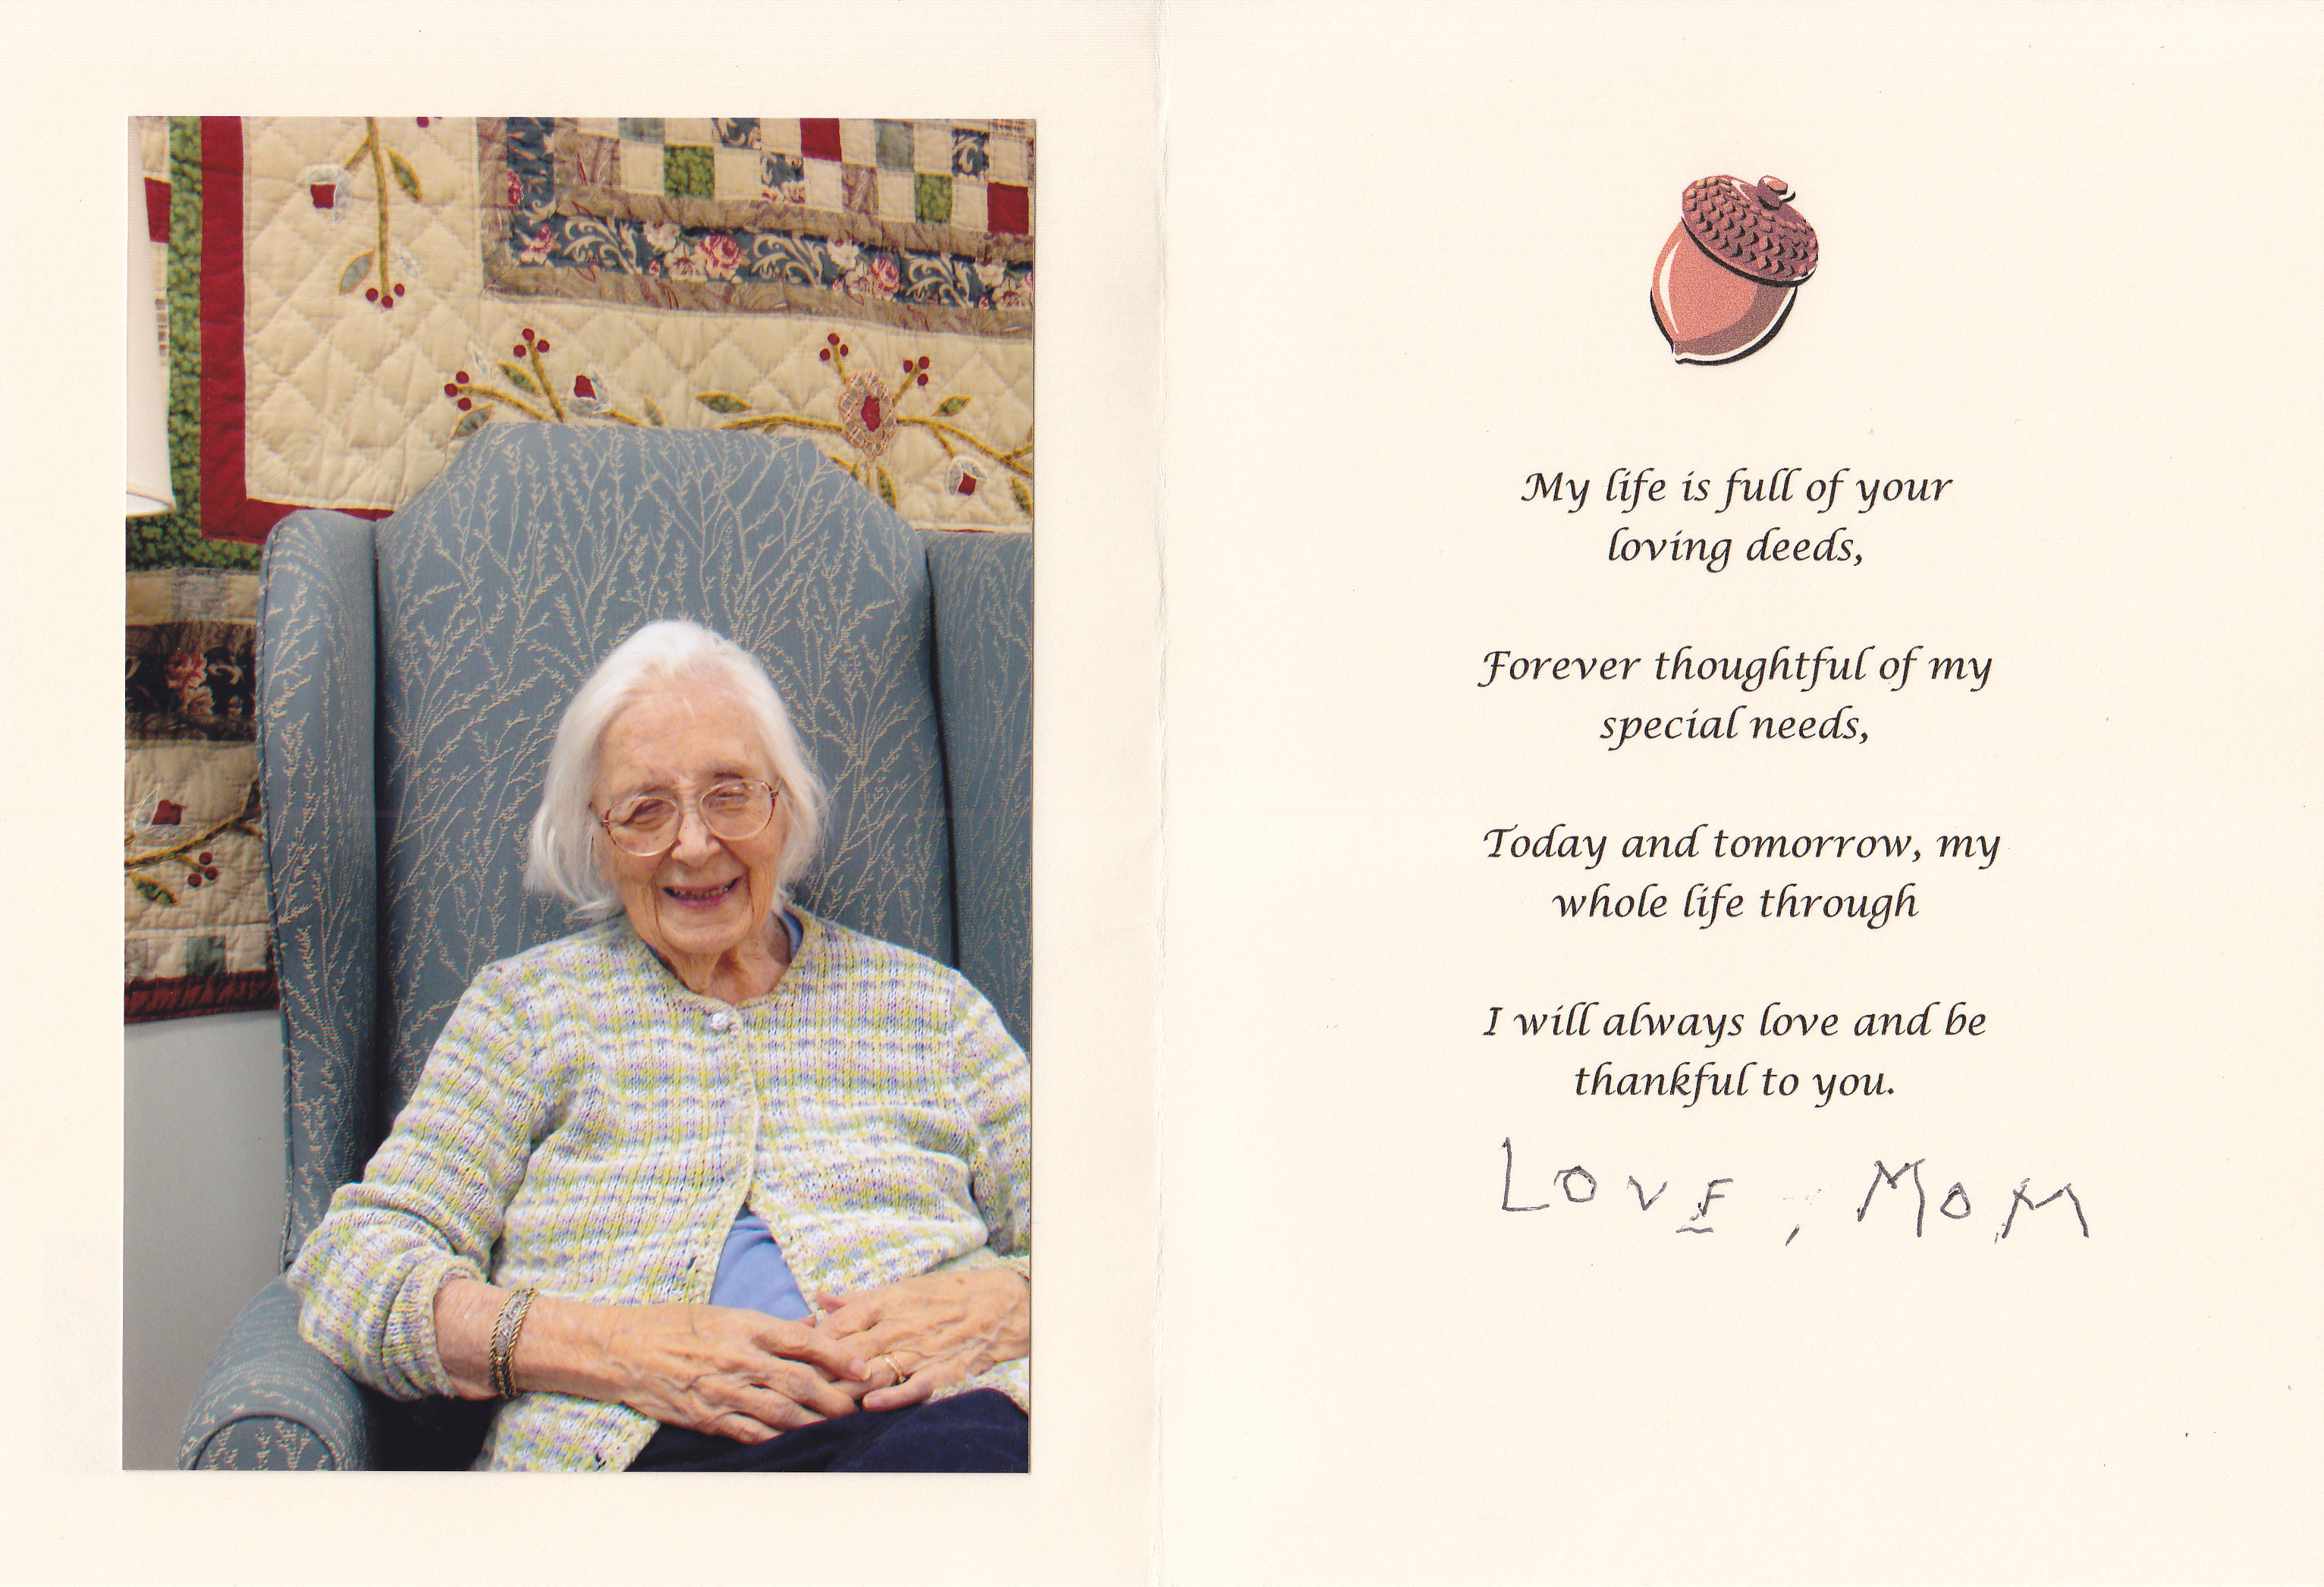 My life is full of your
loving deeds,
Forever thoughtful of my
special needs,
Today and tomorrow, my
whole life through
I will always love and be
thankful to you.
LOVE, MOM